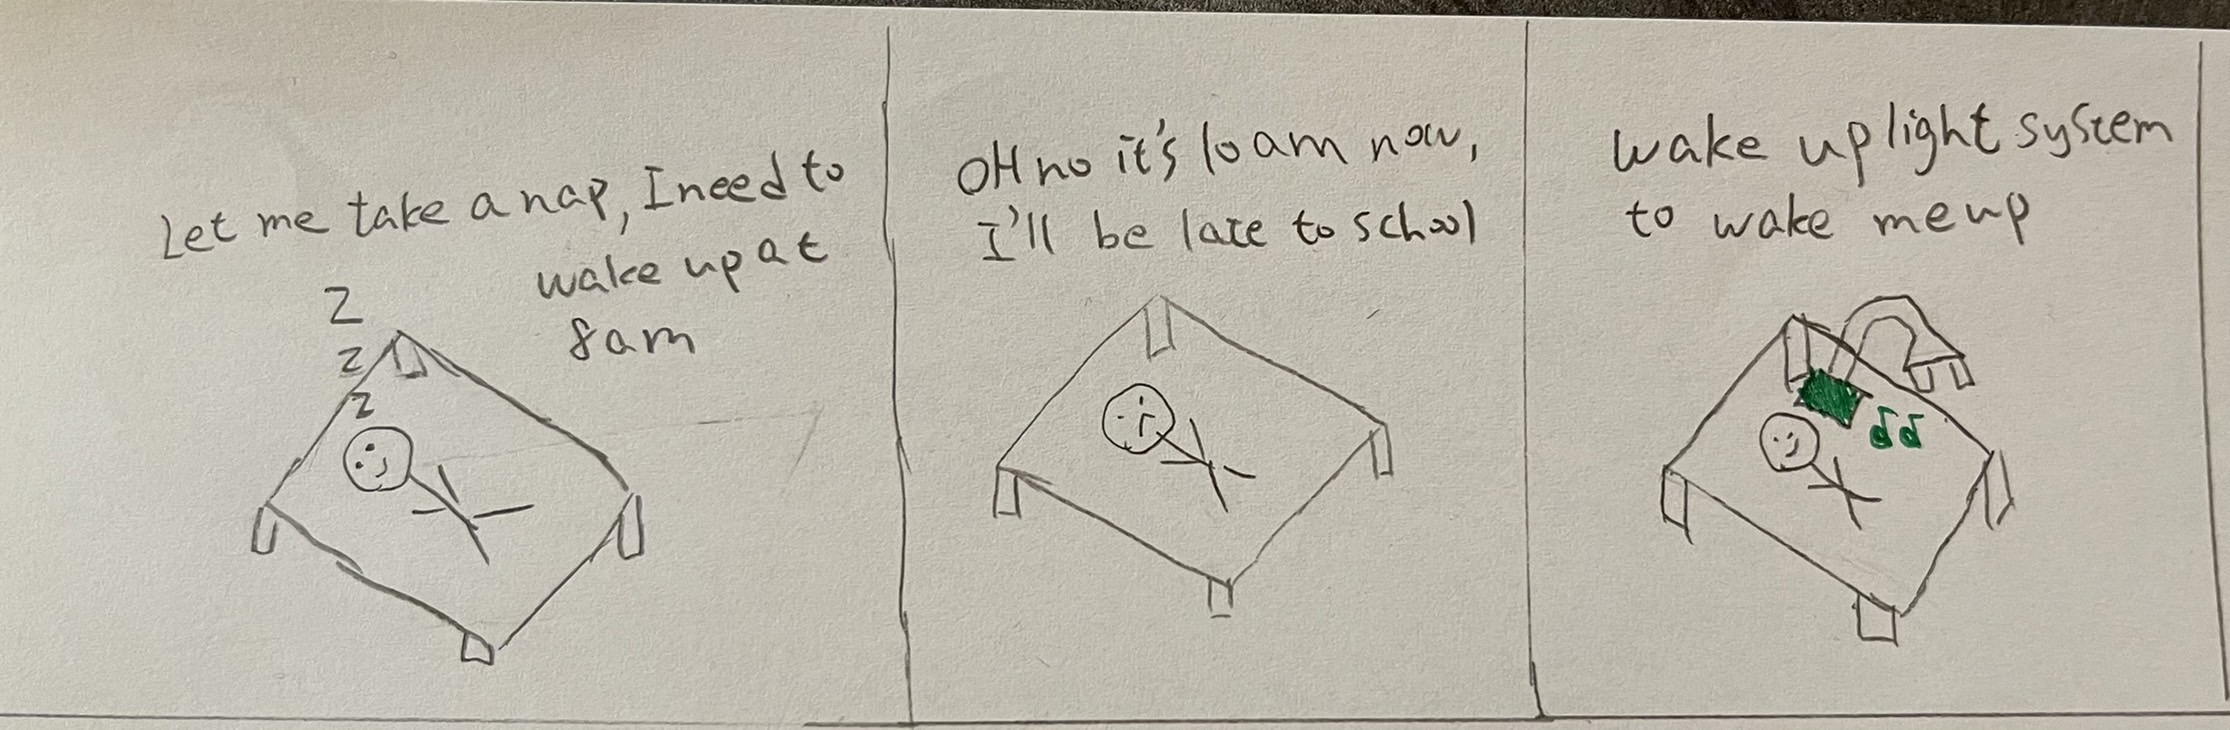 Let me take a nap, I need to
wake up at
8am
Z
Z
Z
OH no it's 10am now,
I'll be late to school
wake up light system
to wake me up